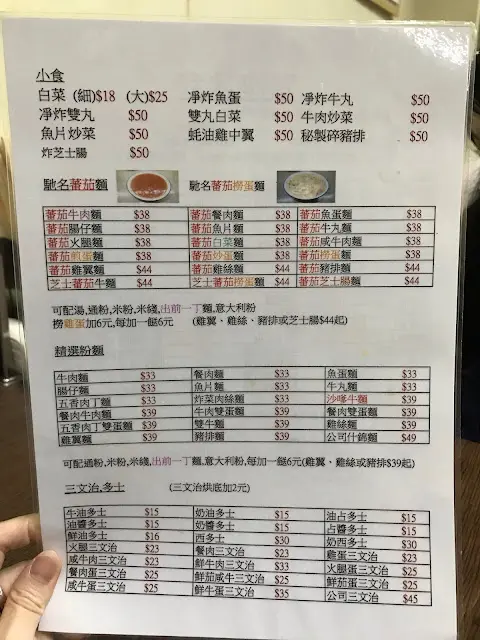 小食
白菜 (細)$18 (大)$25 凈炸魚蛋 $50 凈炸牛丸 $50
凈炸雙丸 $50 雙丸白菜 $50 牛肉炒菜 $50
魚片炒菜 $50 蚝油雞中翼 $50 秘製碎豬排 $50
炸芝士腸 $50
馳名蕃茄麵 馳名蕃茄撈蛋麵
蕃茄牛肉麵 $38 蕃茄餐肉麵 $38 蕃茄魚蛋麵 $38
蕃茄腸仔麵 $38 蕃茄魚片麵 $38 蕃茄牛丸麵 $38
蕃茄火腿麵 $38 蕃茄白菜麵 $38 蕃茄咸牛肉麵 $38
蕃茄煎蛋麵 $38 蕃茄炒蛋麵 $38 蕃茄撈蛋麵 $38
蕃茄雞翼麵 $44 蕃茄雞絲麵 $44 蕃茄豬排麵 $44
芝士蕃茄牛麵 $44 芝士蕃茄撈蛋麵 $44 蕃茄芝士腸麵 $44
可配湯,通粉,米粉,米綫,出前一丁麵,意大利粉
撈雞蛋加6元,每加一餸6元 (雞翼、雞絲、豬排或芝士腸$44起)
精選粉麵
牛肉麵 $33 餐肉麵 $33 魚蛋麵 $33
腸仔麵 $33 魚片麵 $33 牛丸麵 $33
五香肉丁麵 $33 炸菜肉絲麵 $33 沙嗲牛麵 $39
餐肉牛肉麵 $39 牛肉雙蛋麵 $39 餐肉雙蛋麵 $39
五香肉丁雙蛋麵 $39 雙牛麵 $39 雞絲麵 $39
雞翼麵 $39 豬排麵 $39 公司什錦麵 $49
可配通粉,米粉,米綫,出前一丁麵,意大利粉,每加一餸6元(雞翼、雞絲或豬排$39起)
三文治,多士 (三文治烘底加2元)
牛油多士 $15 奶油多士 $15 油占多士 $15
油醬多士 $15 奶醬多士 $15 占醬多士 $15
鮮油多士 $16 西多士 $30 奶西多士 $30
火腿三文治 $23 餐肉三文治 $23 雞蛋三文治 $23
咸牛肉三文治 $23 鮮牛肉三文治 $33 火腿蛋三文治 $25
餐肉蛋三文治 $25 鮮茄咸牛三文治 $25 鮮茄蛋三文治 $25
咸牛蛋三文治 $25 鮮牛蛋三文治 $35 公司三文治 $45